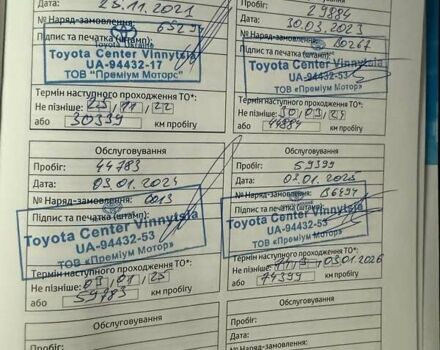 Дата: 25.11.2021
№ Наряд-замовлення:
Підпис та печатка (штамп):
Toyota Ukraine
Toyota Center Vinnytsia
UA-94432-17
ТОВ "Преміум Моторс"
Термін наступного проходження ТО*:
Не пізніше: 25 / 11 / 22
або 30339 км пробігу
29884
Дата: 30.03.2023
№ Наряд-замовлення:
Підпис та печатка (штамп):
Toyota Center Vinnytsia
UA-94432-53
ТОВ «Преміум Мотор»
Термін наступного проходження ТО*:
Не пізніше: 30 / 03 / 24
або 44884 км пробігу
Обслуговування
Пробіг: 44783
Дата: 03.01.2024
№ Наряд-замовлення: 0013
Підпис та печатка (штамп):
Toyota Center Vinnytsia
UA-94432-53
ТОВ «Преміум Мотор»
Термін наступного проходження ТО*:
Не пізніше: 03 / 01 / 25
або 59783 км пробігу
Обслуговування
Пробіг: 59399
Дата: 03.01.2025
№ Наряд-замовлення:
Підпис та печатка (штамп):
Toyota Center Vinnytsia
UA-94432-53
ТОВ «Преміум Мотор»
Термін наступного проходження ТО*:
Не пізніше: 03.01.2026
або 74399 км пробігу
Обслуговування
Пробіг:
Дата:
№ Наряд-замовлення:
Обслуговування
Пробіг:
Дата:
№ Наряд-замовлення: